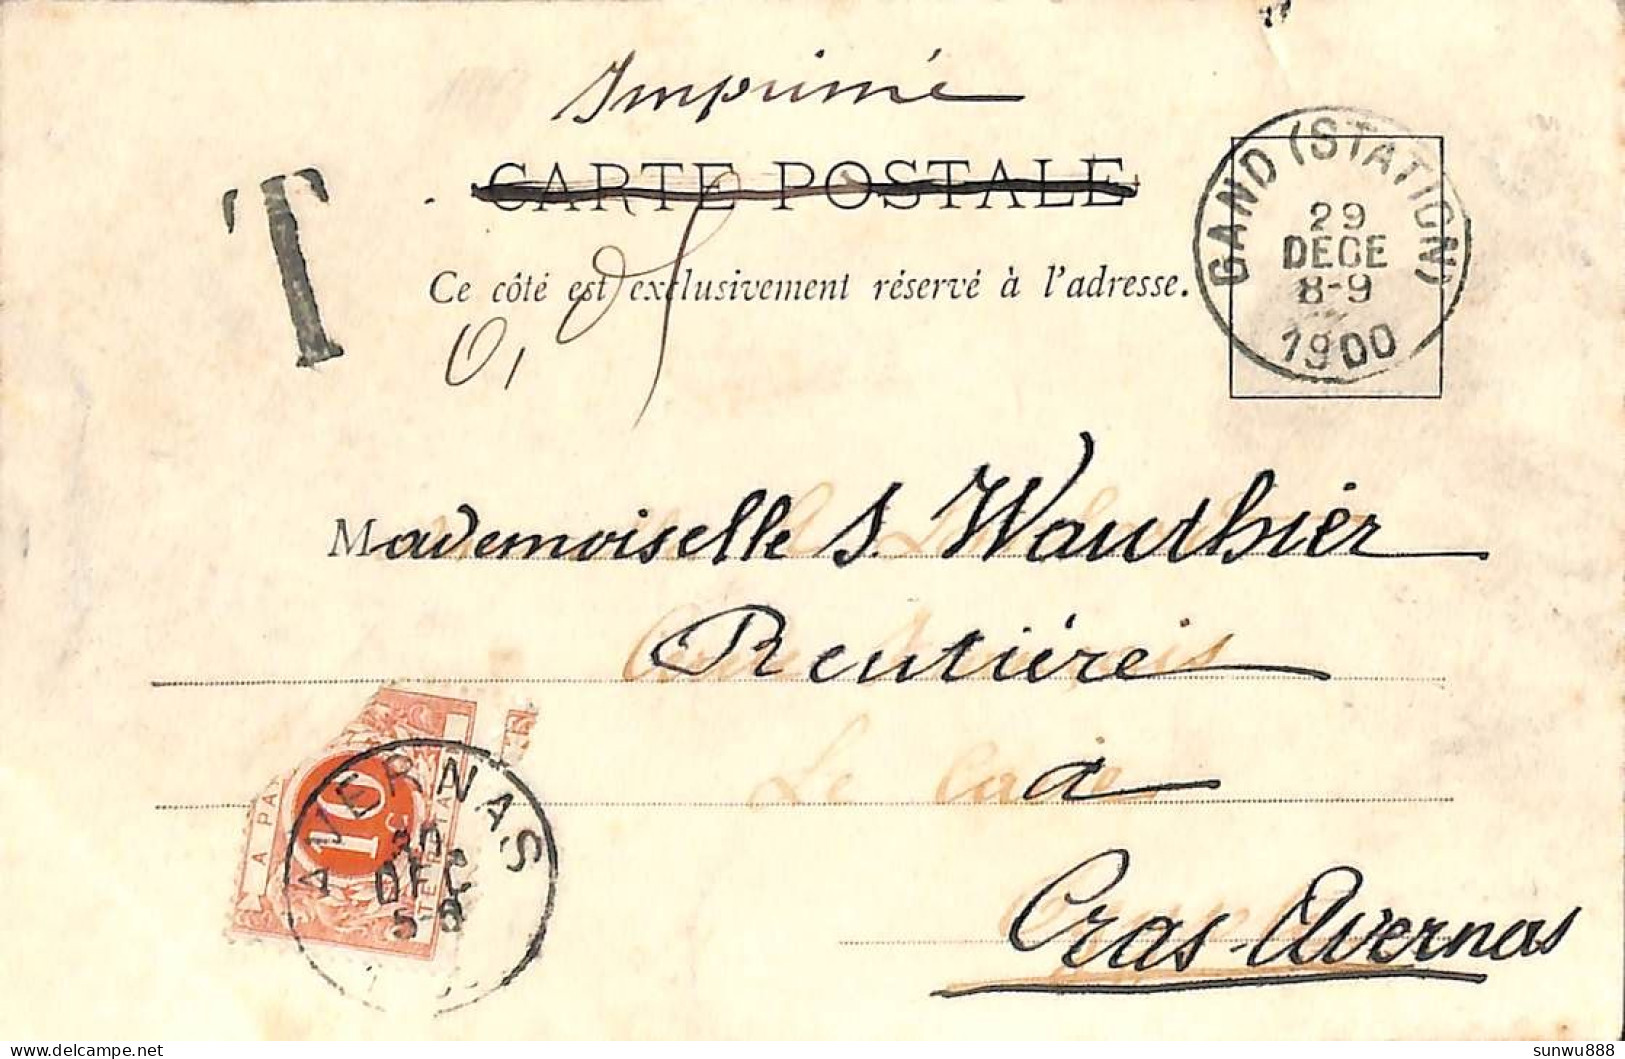 Imprimé
CARTE POSTALE
T
Ce côté est exclusivement réservé à l'adresse.
0,05
GAND (STATION)
29
DECE
8-9
1900
Mademoiselle S. Wauthier
Rentière
à
Cras-Avernas
Le Caire
A PAYER
10 c
AVERNAS
30
DEC
5-6
sunwu888